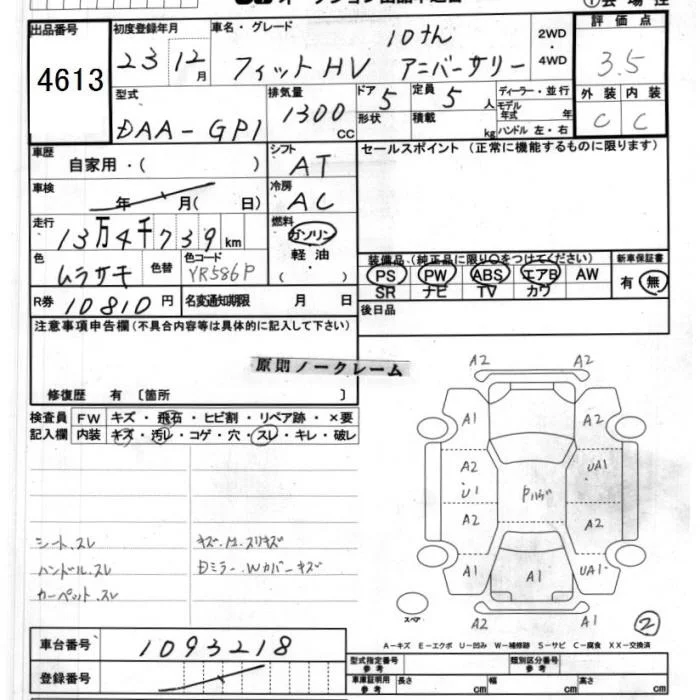 出品番号
4613
初度登録年月
23 12月
車名・グレード
10th
フィットHV アニバーサリー
2WD
・
4WD
評価点
3.5
外装 内装
C C
型式
DAA-GP1
排気量
1300 CC
ドア 5
定員 5 人
形状
積載 kg
ディーラー・並行
モデル年式 年
ハンドル 左・右
車歴
自家用・( )
シフト
AT
セールスポイント(正常に機能するものに限ります)
車検
年 月( 日)
冷房
AC
走行
13万4千739km
燃料
ガソリン
軽油
( )
色
ムラサキ
色替
色コード
YR586P
装備品(純正品に限り○をつけてください)
PS PW ABS エアB AW
SR ナビ TV カワ
新車保証書
有・無
R券 10810円
名変通知期限 月 日
後日品
注意事項申告欄(不具合内容等は具体的に記入して下さい)
原則ノークレーム
修復歴 有 〔箇所 〕
検査員
記入欄
FW キズ・飛石・ヒビ割・リペア跡・×要
内装 キズ・汚レ・コゲ・穴・スレ・キレ・破レ
シート、スレ
ハンドル、スレ
カーペット、スレ
Dミラー、Wカバーキズ
A2 A2
A1 A1
A2 UA1
U1
A2 A2
A1 A1 UA1
A2 A1
スペア
2
A-キズ E-エクボ U-凹み W-補修跡 S-サビ C-腐食 XX-交換済
車台番号
1093218
登録番号
型式指定番号
参考
類別区分番号
参考
車庫証明用
参考
長さ cm 幅 cm 高さ cm